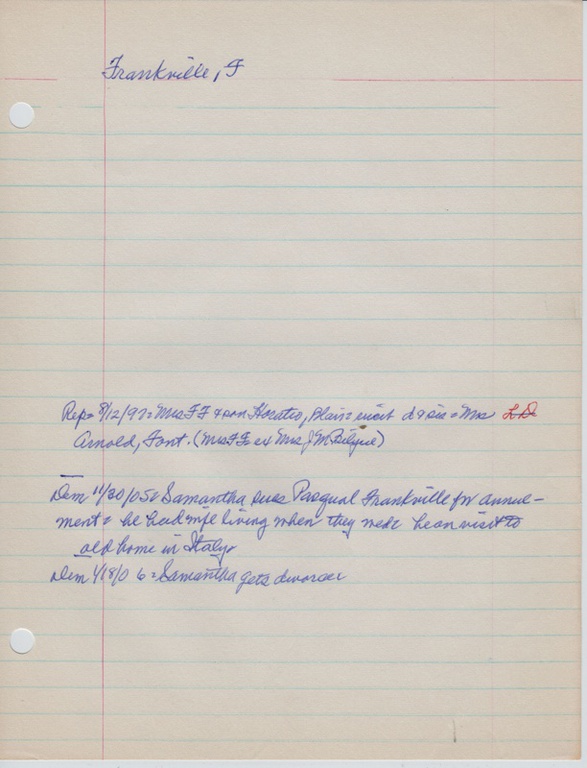 Frankville, F
Rep= 8/12/97= Mrs FF & son Horatio, Plain= visit d & sis= Mrs L D
Arnold, Font. (Mrs FF ex Mrs J M Bilyue)
Dem 11/30/05= Samantha sues Pasqual Frankville for annul-
ment= he had wife living when they wed= he on visit to
old home in Italy
Dem 4/18/06= Samantha gets divorce